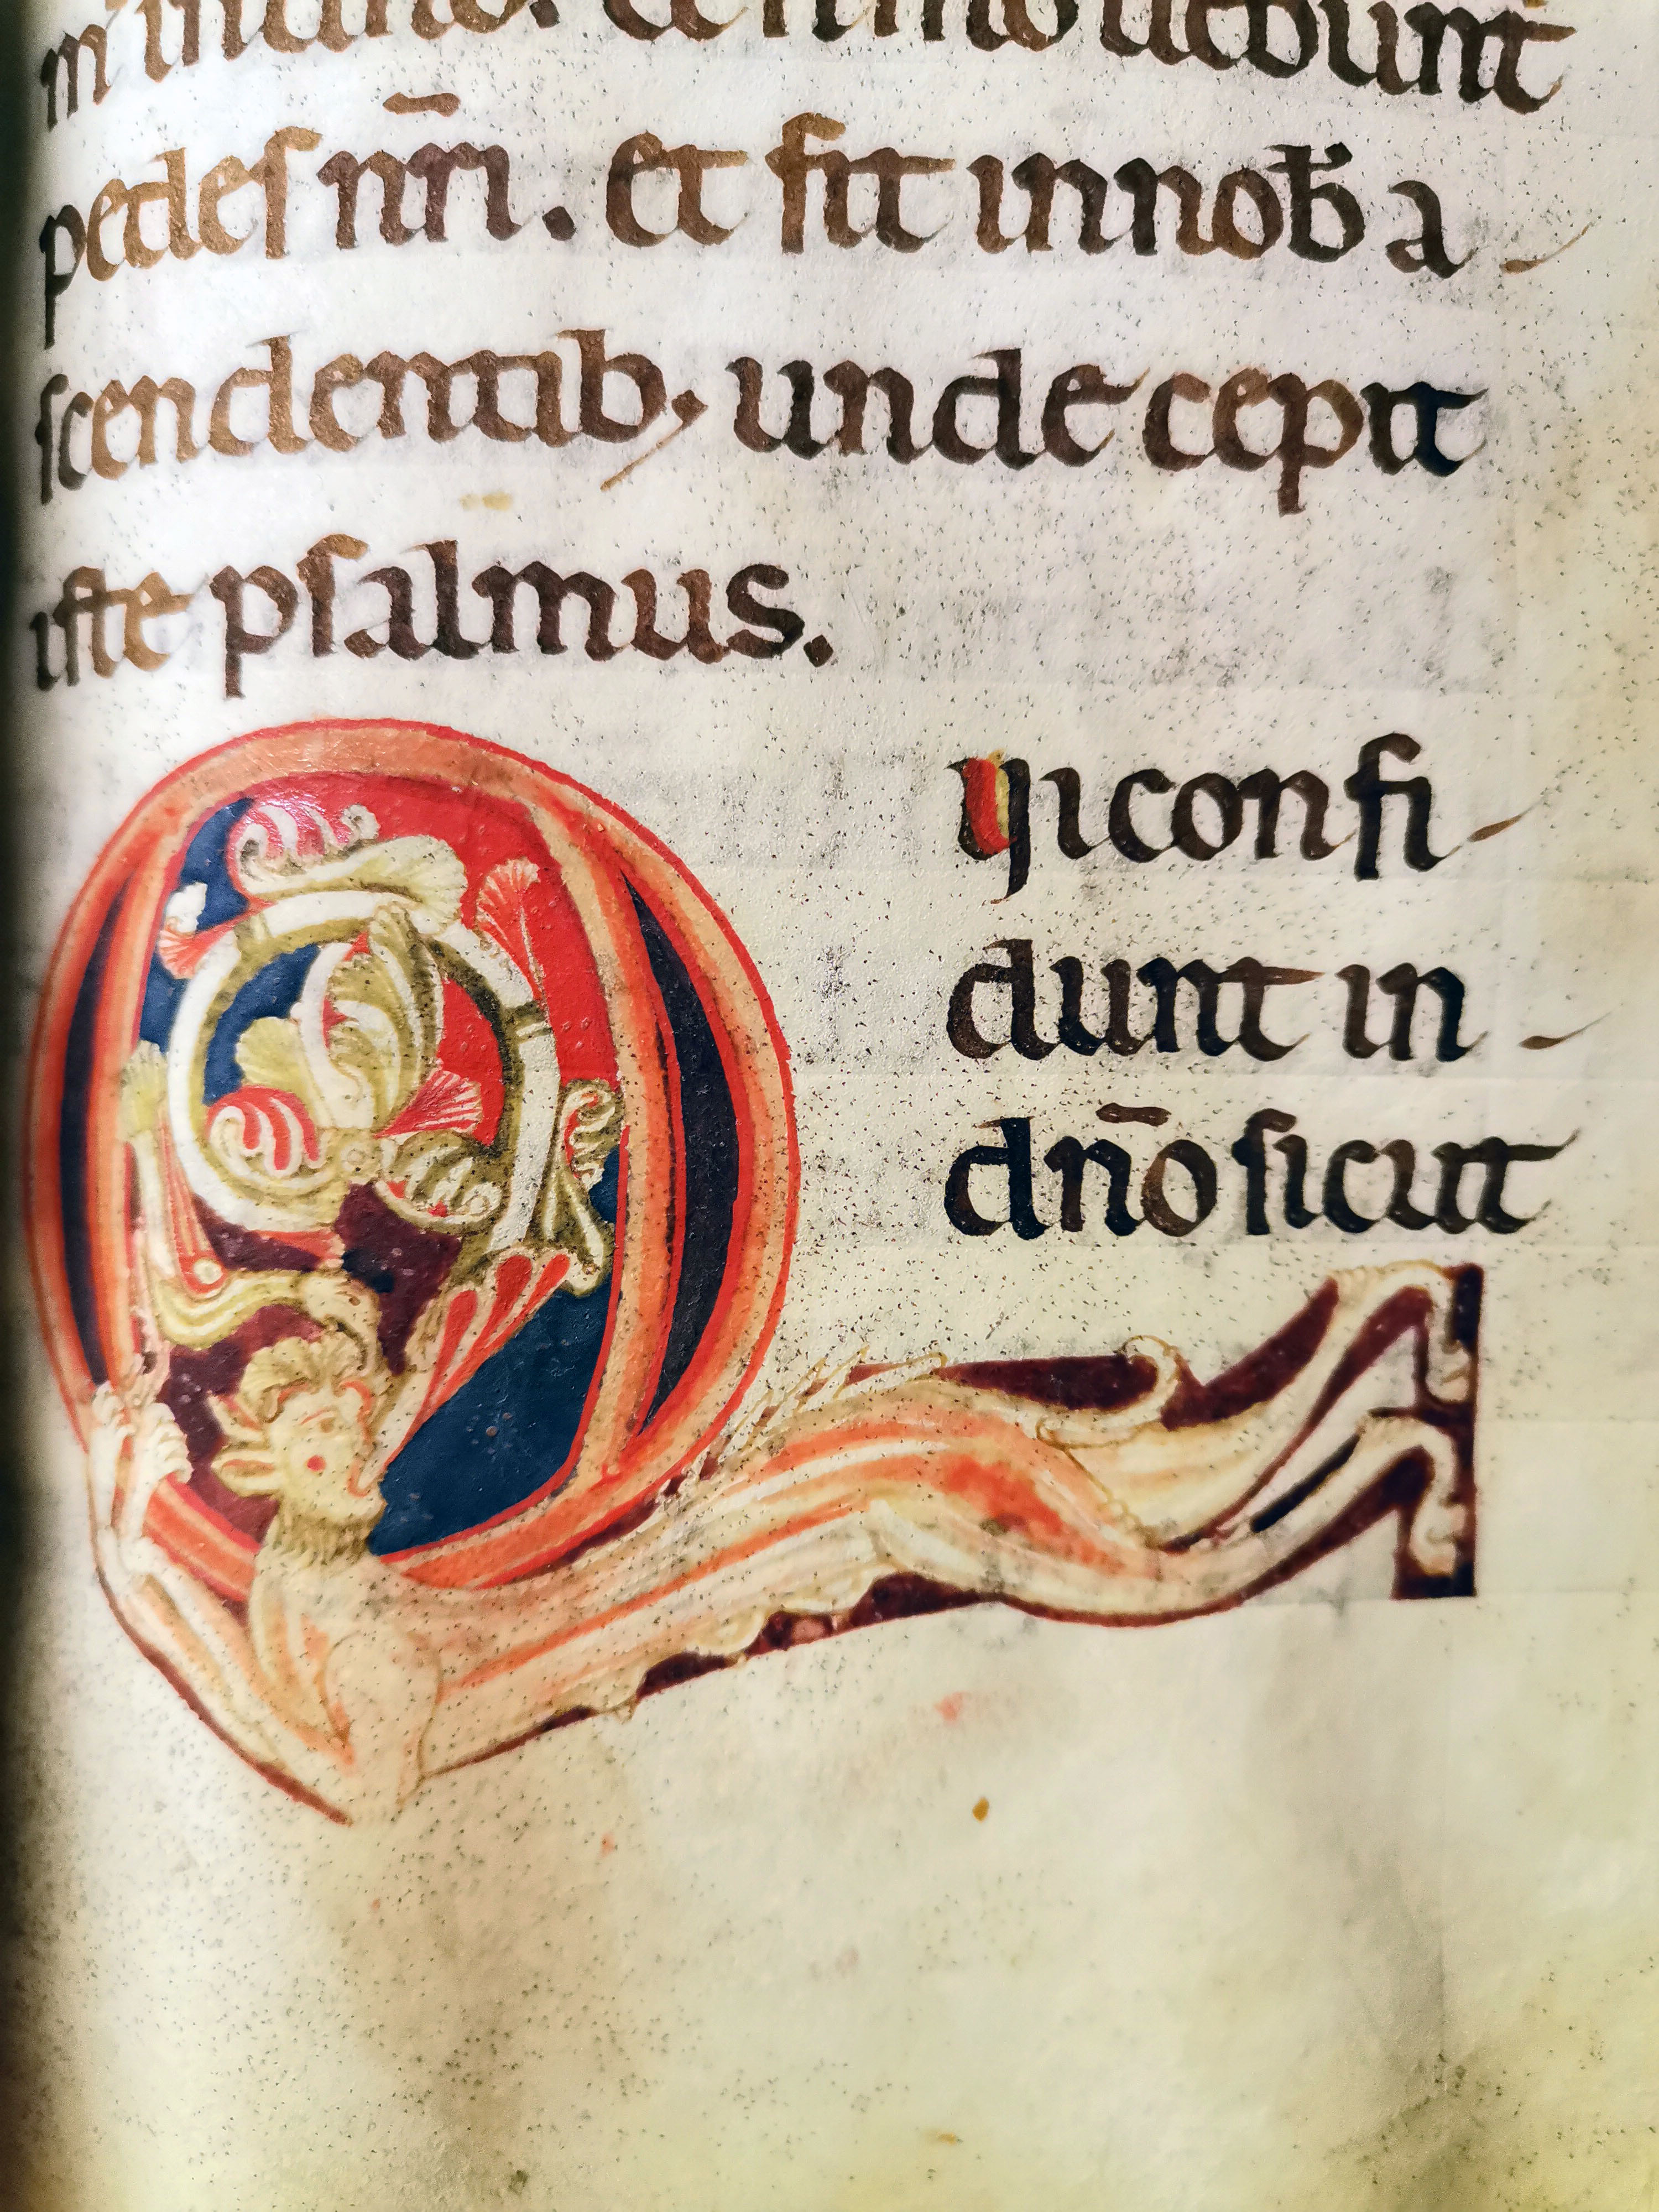 et n mouebunt
pedes nr̄i. et fit in nob̄ a-
scendentib; unde cepit
iste psalmus.
Qui confi-
dunt in-
dn̄o sicut